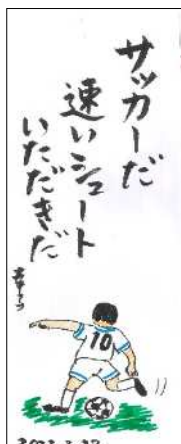 サッカーだ
速いシュート
いただきだ
10